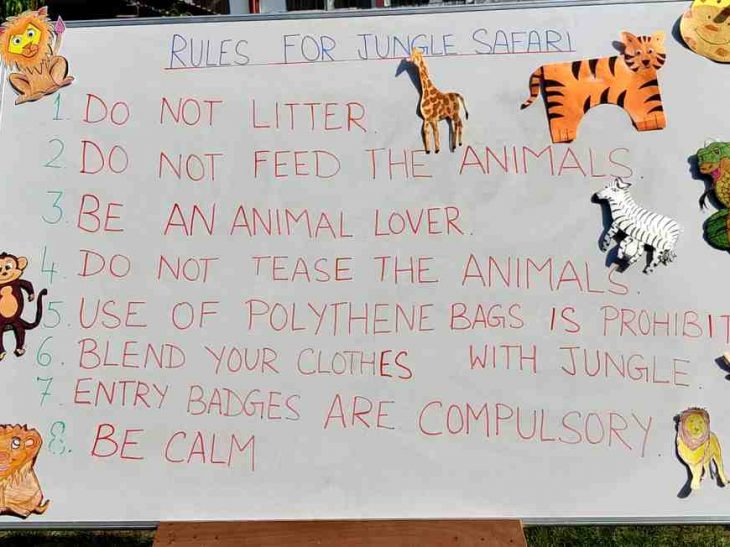 RULES FOR JUNGLE SAFARI
1. DO NOT LITTER.
2. DO NOT FEED THE ANIMALS.
3. BE AN ANIMAL LOVER.
4. DO NOT TEASE THE ANIMALS.
5. USE OF POLYTHENE BAGS IS PROHIBIT
6. BLEND YOUR CLOTHES WITH JUNGLE.
7. ENTRY BADGES ARE COMPULSORY.
8. BE CALM